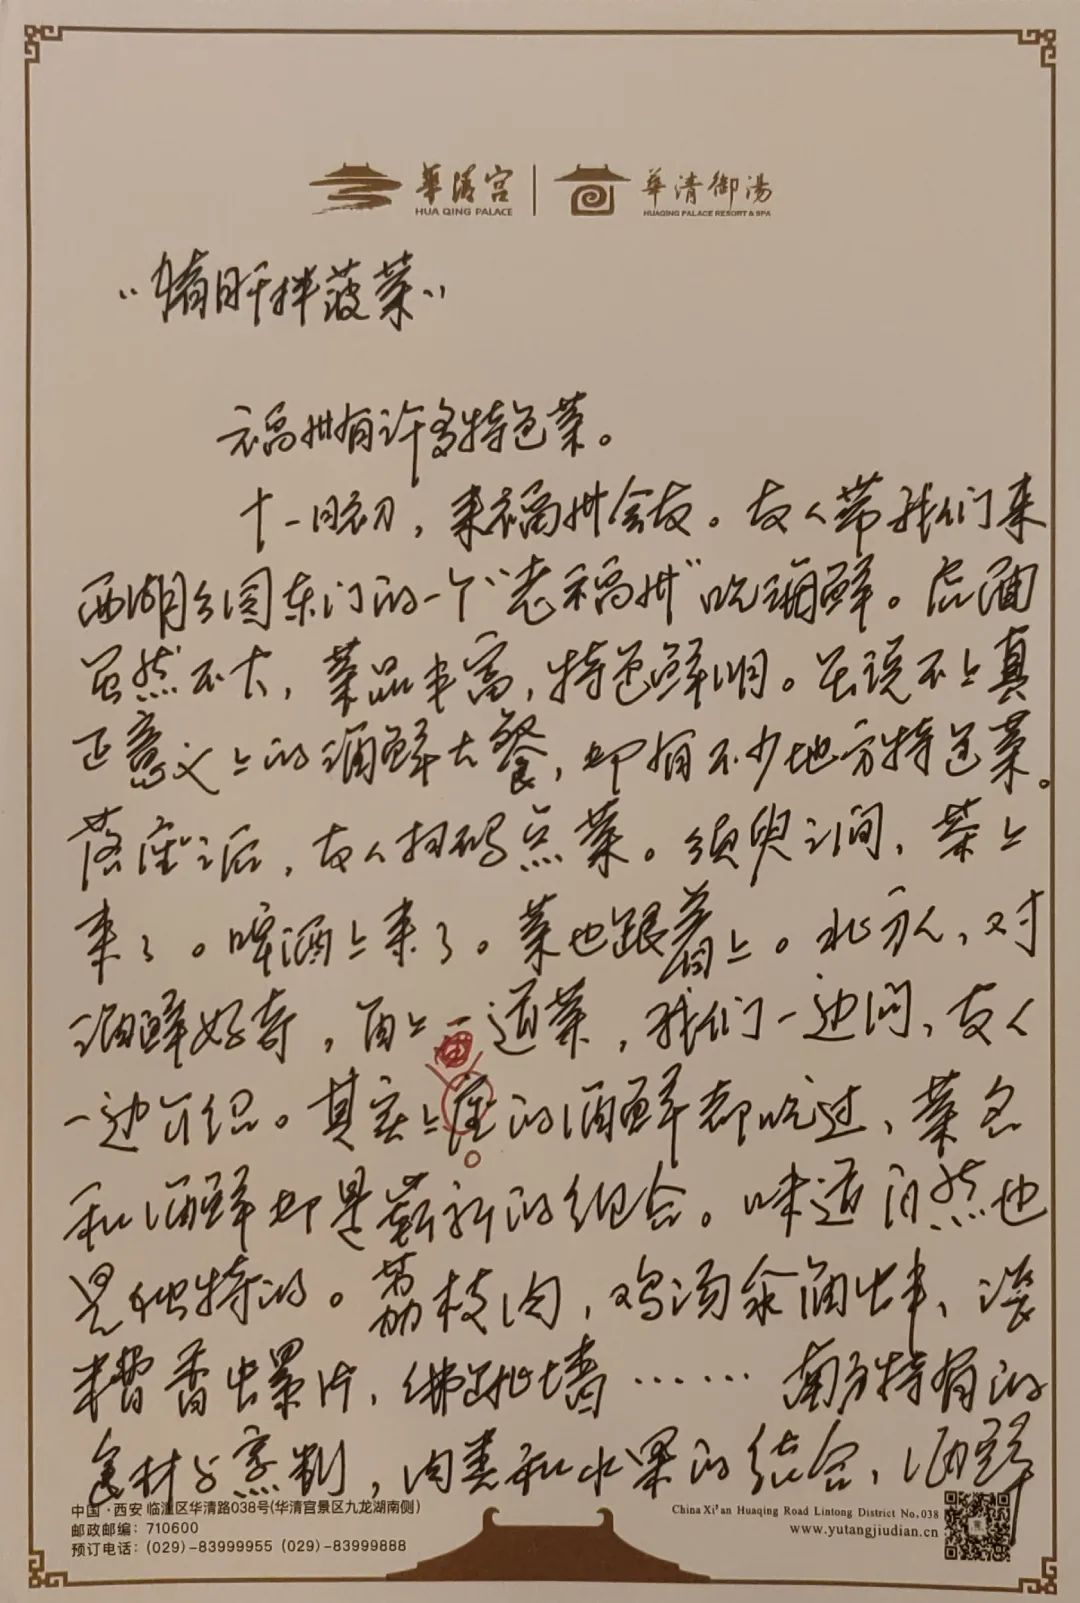 華清宮 華清御湯
HUA QING PALACE HUAQING PALACE RESORT & SPA
“猪肝拌菠菜”
福州有许多特色菜。
十一月初，来福州会友。友人带我们来
西湖公园东门的一个“老福州”吃海鲜。店面
虽然不大，菜品丰富，特色鲜明。虽说不上真
正意义上的海鲜大餐，却有不少地方特色菜。
落座之后，友人扫码点菜。须臾之间，茶上
来了。啤酒上来了。菜也跟着上。北方人，对
海鲜好奇，每上一道菜，我们一边问，友人
一边介绍。其实上桌的海鲜都吃过，菜名
和海鲜却是崭新的组合。味道自然也
是独特的。荔枝肉，鸡汤汆海蚌，淡
糟香螺片，佛跳墙……南方特有的
食材与烹制，肉类和水果的结合，海鲜
中国·西安 临潼区华清路038号(华清宫景区九龙湖南侧)
邮政邮编：710600
预订电话：(029)-83999955 (029)-83999888
China Xi'an Huaqing Road Lintong District No.038
www.yutangjiudian.cn